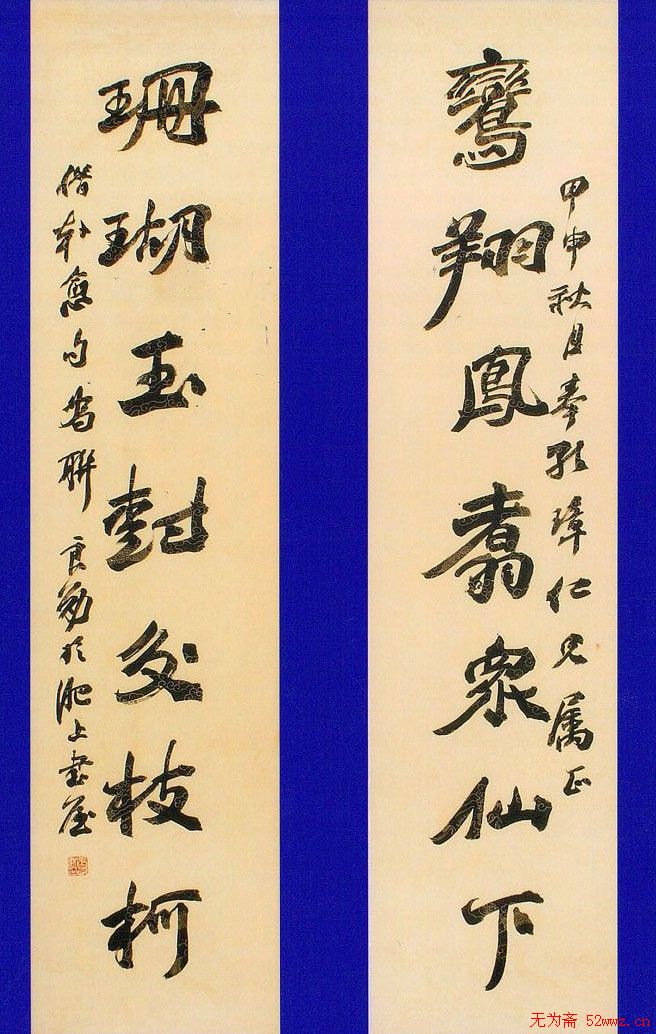 甲申秋月奉璋仁兄属正
鸞翔鳳翥衆仙下
珊瑚玉樹交枝柯
借韓愈句為聯 良勤於淝上書屋
无为斋 52wwz.cn